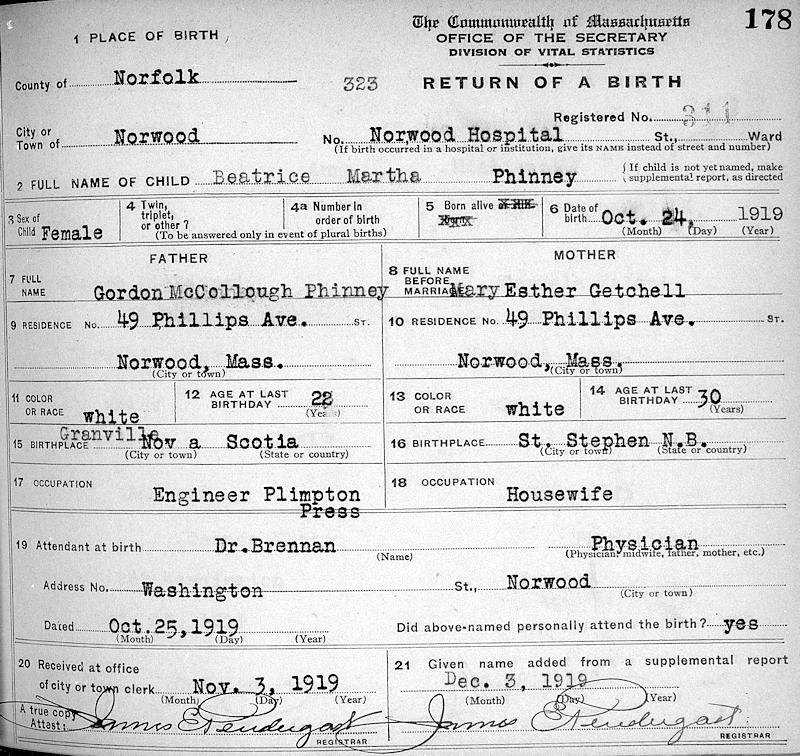 The Commonwealth of Massachusetts 178
1 PLACE OF BIRTH OFFICE OF THE SECRETARY
DIVISION OF VITAL STATISTICS
County of Norfolk 323 RETURN OF A BIRTH
Registered No. 311
City or
Town of Norwood No. Norwood Hospital St., Ward
(If birth occurred in a hospital or institution, give its NAME instead of street and number)
2 FULL NAME OF CHILD Beatrice Martha Phinney { If child is not yet named, make
supplemental report, as directed
3 Sex of
Child Female
4 Twin,
triplet,
or other ?
4a Number in
order of birth
(To be answered only in event of plural births)
5 Born alive
6 Date of
birth Oct. 24, 1919
(Month) (Day) (Year)
FATHER
MOTHER
7 FULL
NAME Gordon McCollough Phinney
8 FULL NAME
BEFORE
MARRIAGE Mary Esther Getchell
9 RESIDENCE No. 49 Phillips Ave. ST.
10 RESIDENCE No. 49 Phillips Ave. ST.
Norwood, Mass.
(City or town)
Norwood, Mass.
(City or town)
11 COLOR
OR RACE white
12 AGE AT LAST
BIRTHDAY 22
(Years)
13 COLOR
OR RACE white
14 AGE AT LAST
BIRTHDAY 30
(Years)
Granville
15 BIRTHPLACE Nov a Scotia
(City or town) (State or country)
16 BIRTHPLACE St. Stephen N.B.
(City or town) (State or country)
17 OCCUPATION Engineer Plimpton
Press
18 OCCUPATION Housewife
19 Attendant at birth Dr.Brennan Physician
(Name) (Physician, midwife, father, mother, etc.)
Address No. Washington St., Norwood
(City or town)
Dated Oct.25,1919 Did above-named personally attend the birth? yes
(Month) (Day) (Year)
20 Received at office
of city or town clerk Nov. 3, 1919
(Month) (Day) (Year)
21 Given name added from a supplemental report
Dec. 3, 1919
(Month) (Day) (Year)
A true copy
Attest: James E Pendergast
REGISTRAR
James E Pendergast
REGISTRAR